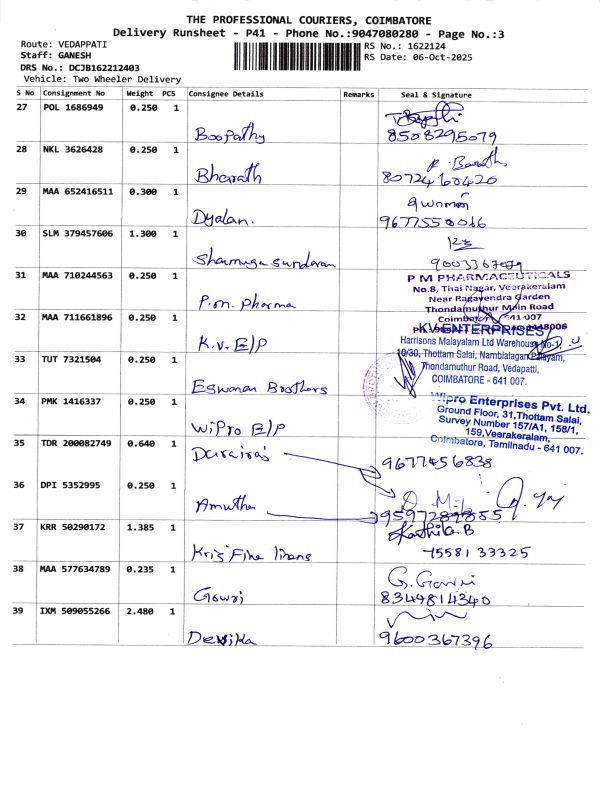 THE PROFESSIONAL COURIERS, COIMBATORE
Delivery Runsheet - P41 - Phone No.:9047080280 - Page No.:3
Route: VEDAPPATI
RS No.: 1622124
Staff: GANESH
RS Date: 06-Oct-2025
DRS No.: DCJB162212403
Vehicle: Two Wheeler Delivery
S No Consignment No Weight PCS Consignee Details Remarks Seal & Signature
27 POL 1686949 0.250 1
Boopathy 8508295079
28 NKL 3626428 0.250 1
R. Barath
Bharath 8072460420
29 MAA 652416511 0.300 1
Dyalan. 9677550066
30 SLM 379457606 1.300 1
123
Shanmuga Sundaram 9003367079
31 MAA 710244563 0.250 1
P.m. Pharma
P M PHARMACEUTICALS
No.8, Thai Nagar, Veerakeralam
Near Ragavendra Garden
Thondamuthur Main Road
Coimbatore 641 007
32 MAA 711661896 0.250 1
K.V. E/P
KV ENTERPRISES
Harrisons Malayalam Ltd Warehouse No-1,
10/30, Thottam Salai, Namblalagan Palayam,
Thondamuthur Road, Vedapatti,
COIMBATORE - 641 007.
33 TUT 7321504 0.250 1
Eswaran Brothers
34 PMK 1416337 0.250 1
WiPro E/P
Wipro Enterprises Pvt. Ltd.
Ground Floor, 31,Thottam Salai,
Survey Number 157/A1, 158/1,
159,Veerakeralam,
Coimbatore, Tamilnadu - 641 007.
35 TDR 200082749 0.640 1
Durairaj 9677456838
36 DPI 5352995 0.250 1
Amutha
37 KRR 50290172 1.385 1
Karthika.B
Kris Fine linans 75581 33325
38 MAA 577634789 0.235 1
G. Gowri
Gowri 8344814340
39 IXM 509055266 2.480 1
Devika 9600367396